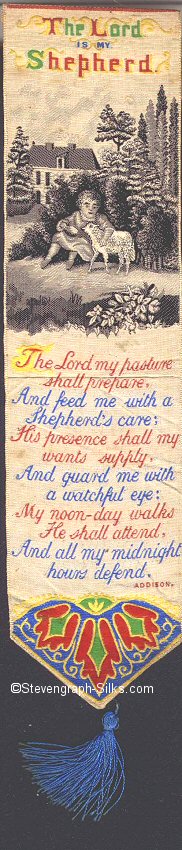 The Lord
IS MY
Shepherd.
The Lord my pasture
shall prepare,
And feed me with a
Shepherd's care;
His presence shall my
wants supply,
And guard me with
a watchful eye;
My noon-day walks
He shall attend,
And all my midnight
hours defend.
ADDISON.
©Stevengraph-Silks.com